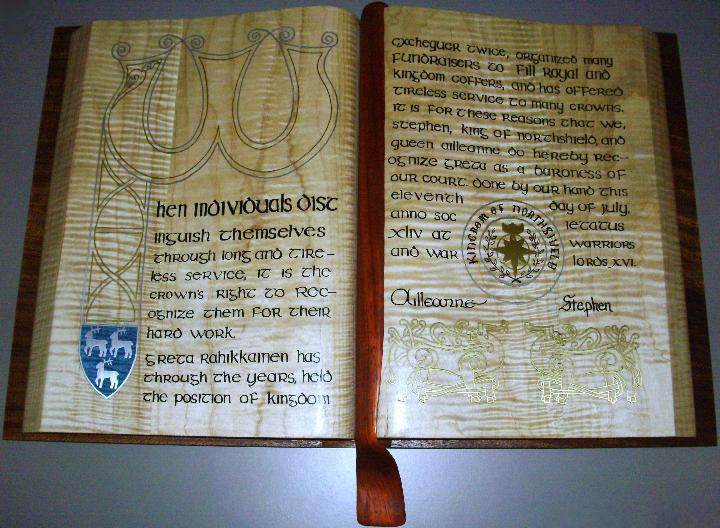 When individuals dist
inguish themselves
through long and tire-
less service, it is the
crown's right to rec-
ognize them for their
hard work.
Greta Rahikkainen has
through the years, held
the position of kingdom
exchequer twice, organized many
fundraisers to fill royal and
kingdom coffers, and has offered
tireless service to many crowns.
it is for these reasons that we,
stephen, king of northshield, and
queen ailleanne do hereby rec-
ognize greta as a baroness of
our court. done by our hand this
eleventh day of july,
anno soc ietatus
xliv at warriors
and war lords xvi.
KINGDOM OF NORTHSHIELD
Ailleanne Stephen